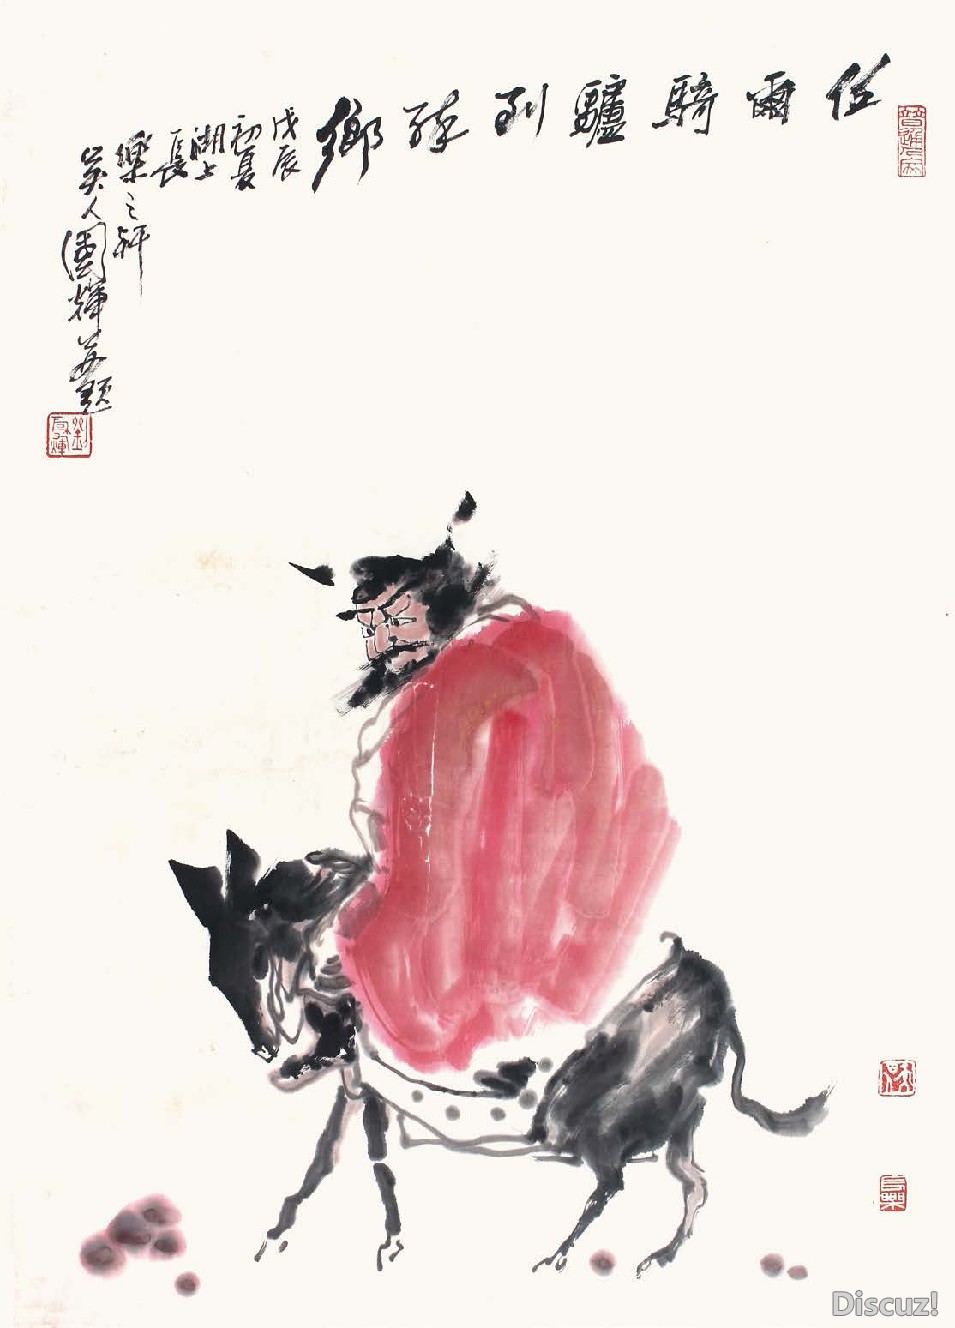 任爾騎驢到醉鄉
戊辰
初夏
湖上
長
樂之軒
吳人國輝並題
Discuz!